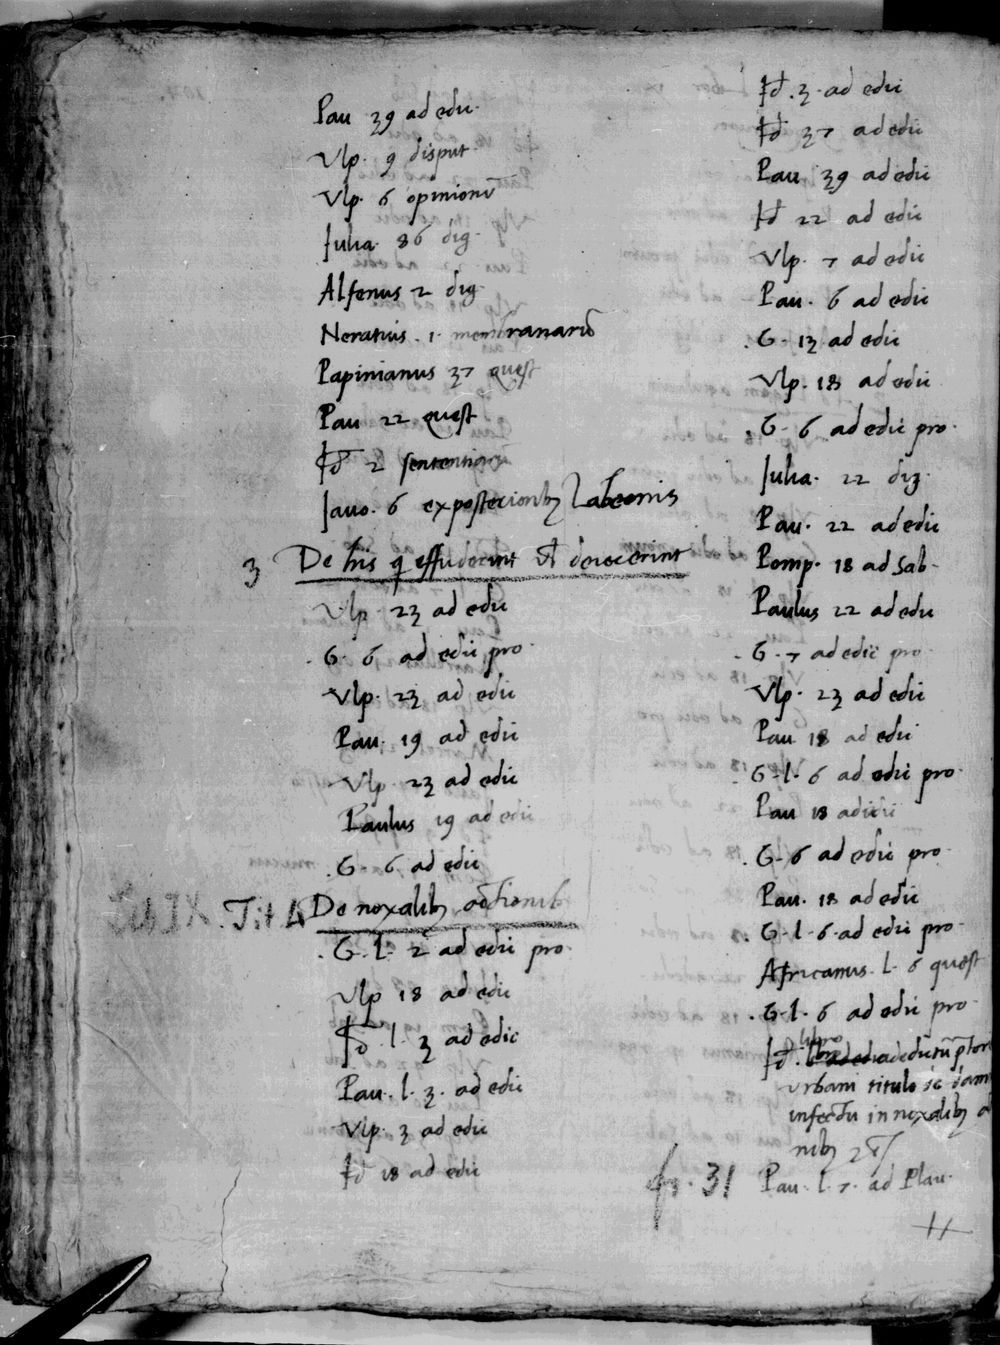 Pau 39 ad edu.
Vlp. 9 disput.
Vlp. 6 opinionū
Julia. 86 dig.
Alfenus 2 dig.
Neratius . 1. membranarū
Papinianus 37 quest
Pau 22 quest
Id 2 sententiarū
Javo. 6 expostecionibꝫ Labeonis
3 De his q̄ effuderint vl deiecerint
Vlp 23 ad edu
. G. 6 ad edii pro.
Vlp. 23 ad edii
Pau. 19 ad edii
Vlp. 23 ad edii
Paulus 19 ad edii
. G. 6 ad edii
Tit 4 De noxalibꝫ actionibꝫ
. G. l. 2 ad edii pro.
Vlp 18 ad edii
Id . l. 3 ad edic
Pau. l. 3. ad edii
Vlp. 3 ad edii
Id 18 ad edii
Id . 3. ad edii
Id 37 ad edii
Pau 39 ad edii
Id 22 ad edii
Vlp. 7 ad edii
Pau. 6 ad edii
. G. 13 ad edii
Vlp. 18 ad edii
. G. 6 ad edii pro.
Julia. 22 dig.
Pau. 22 ad edii
Pomp. 18 ad Sab.
Paulus 22 ad edu
. G. 7 ad edic pro
Vlp. 23 ad edii
Pau 18 ad edii
. G. l. 6 ad edii pro.
Pau 18 ad edii
. G. 6 ad edii pro.
Pau. 18 ad edii
. G. l. 6. ad edii pro.
Africanus. l. 6 quest
. G. l. 6 ad edii pro
libro
Id. ad edictū p̄tori
urbani titulo de dam
infectū in noxalibꝫ a
nibꝫ 2
fr. 31 Pau. l. 7. ad Plau.